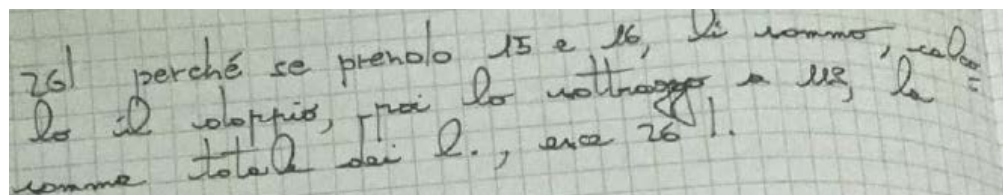 26! perché se prendo 15 e 16, li sommo, calco=
lo il doppio, poi lo sottraggo a 112, la
somma totale dei l., esce 26!.